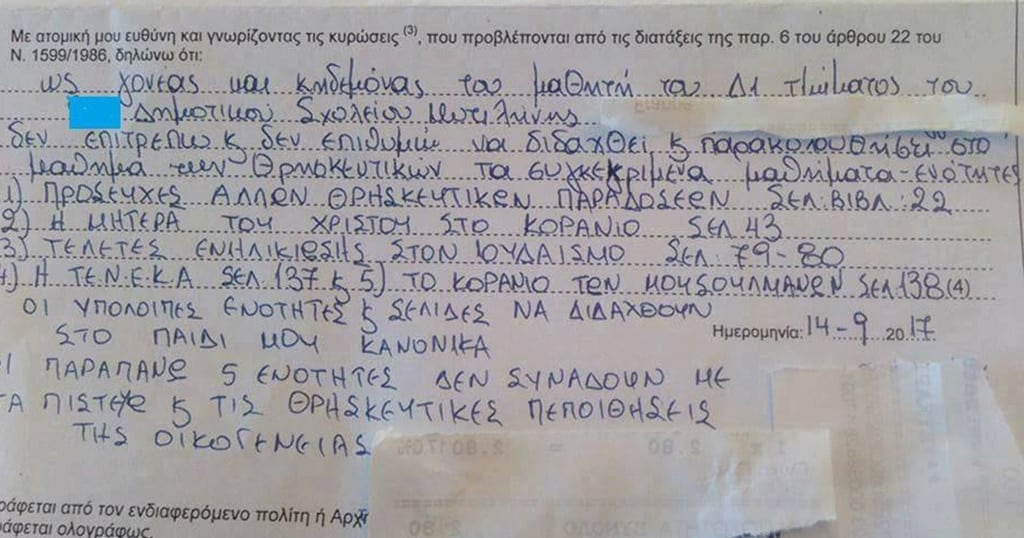 Με ατομική μου ευθύνη και γνωρίζοντας τις κυρώσεις (3), που προβλέπονται από τις διατάξεις της παρ. 6 του άρθρου 22 του
Ν. 1599/1986, δηλώνω ότι:
ως γονέας και κηδεμόνας του μαθητή του Δ1 τμήματος του
Δημοτικού Σχολείου Μυτιλήνης
δεν ΕΠΙΤΡΕΠω κ δεν επιθυμώ να διδαχθεί & παρακολουθήσει στο
μάθημα των Θρησκευτικών τα συγκεκριμένα μαθήματα-ενότητες
1) ΠΡΟΣΕΥΧΕΣ ΑΛΛΩΝ ΘΡΗΣΚΕΥΤΙΚΩΝ ΠΑΡΑΔΟΣΕΩΝ ΣΕΛ. ΒΙΒΛ: 22
2) Η ΜΗΤΕΡΑ ΤΟΥ ΧΡΙΣΤΟΥ ΣΤΟ ΚΟΡΑΝΙΟ ΣΕΛ 43
3) ΤΕΛΕΤΕΣ ΕΝΗΛΙΚΙΩΣΗΣ ΣΤΟΝ ΙΟΥΔΑΙΣΜΟ ΣΕΛ: 79-80
4) Η ΤΕ.Ν.Ε.Κ.Α ΣΕΛ. 137 & 5) ΤΟ ΚΟΡΑΝΙΟ ΤΩΝ ΜΟΥΣΟΥΛΜΑΝΩΝ ΣΕΛ 138 (4)
ΟΙ ΥΠΟΛΟΙΠΕΣ ΕΝΟΤΗΤΕΣ & ΣΕΛΙΔΕΣ ΝΑ ΔΙΔΑΧΘΟΥΝ
ΣΤΟ ΠΑΙΔΙ ΜΟΥ ΚΑΝΟΝΙΚΑ
Ημερομηνία: 14-9 2017
Ι ΠΑΡΑΠΑΝΩ 5 ΕΝΟΤΗΤΕΣ ΔΕΝ ΣΥΝΑΔΟΥΝ ΜΕ
ΤΑ ΠΙΣΤΕΥΩ & ΤΙΣ ΘΡΗΣΚΕΥΤΙΚΕΣ ΠΕΠΟΙΘΗΣΕΙΣ
ΤΗΣ ΟΙΚΟΓΕΝΕΙΑΣ
ράφεται από τον ενδιαφερόμενο πολίτη ή Αρχ
ράφεται ολογράφως.